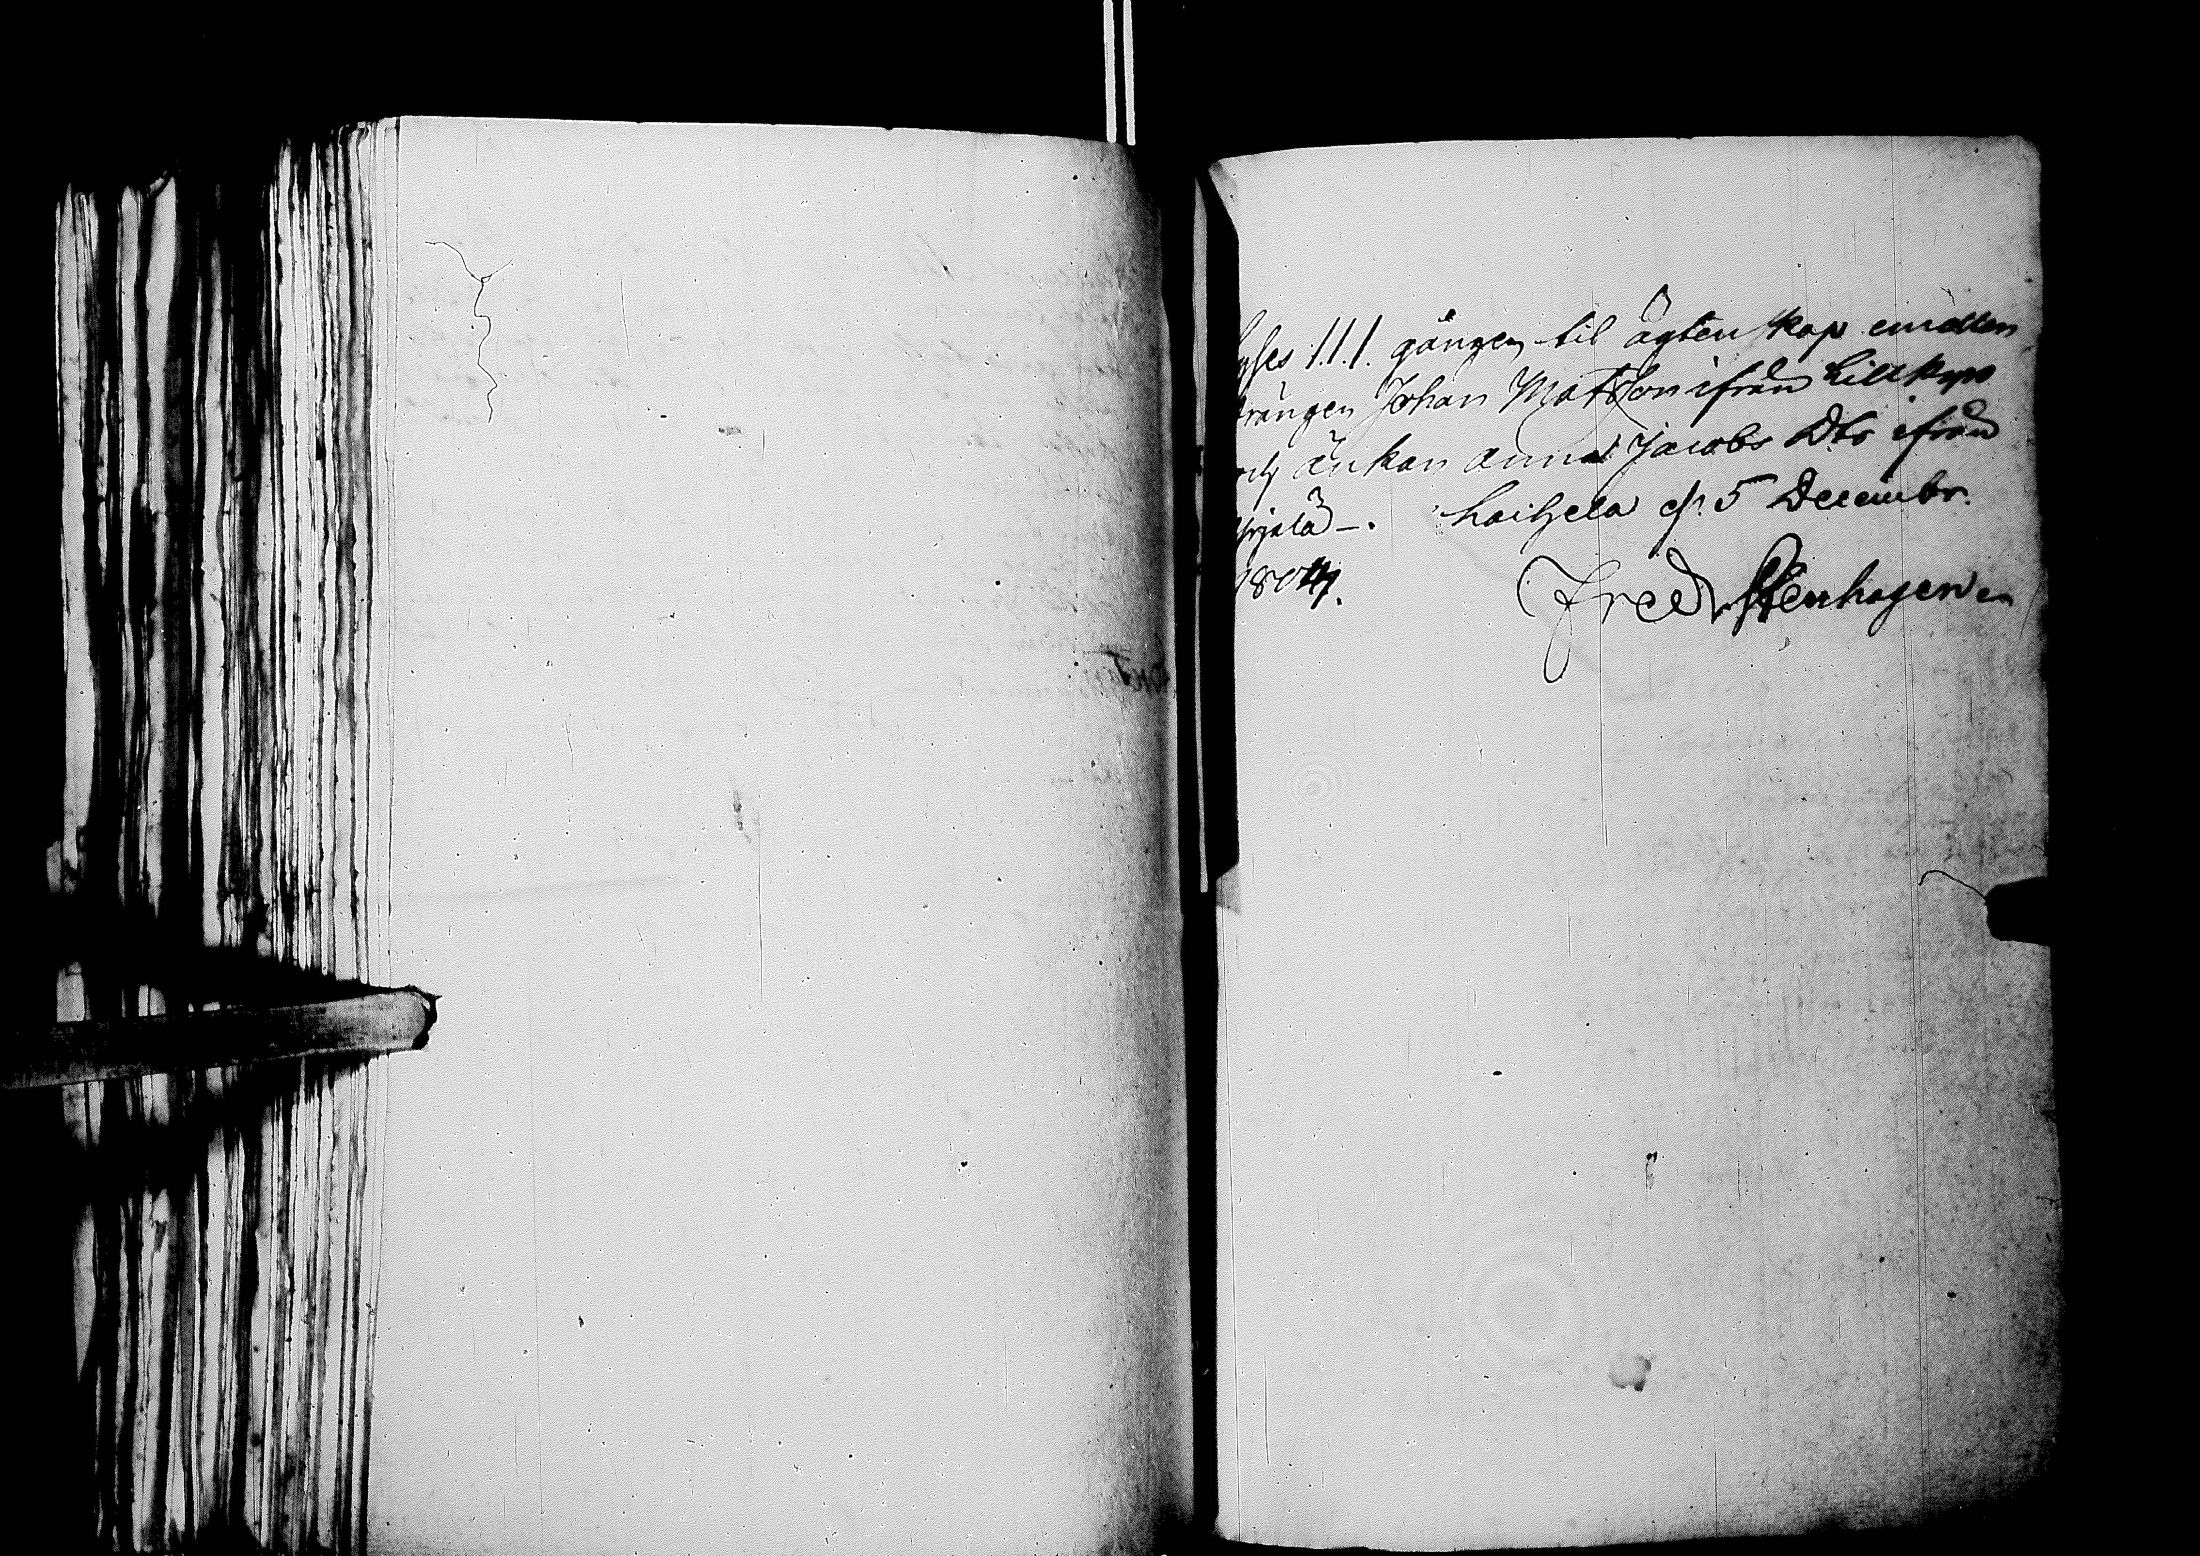 lyses 1.1.1. gången til ägtenskap emellan
drängen Johan Matsson ifrån Lillkyro
och änkan anna Jacobs Dtr ifrån
Laihela d. 5 Decembr.
1804.
Fredr Stenhagen